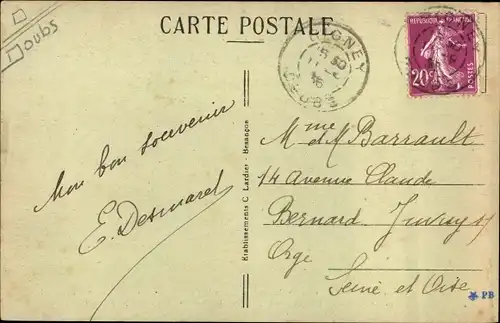 Doubs
CARTE POSTALE
RÉPUBLIQUE FRANÇAISE
20c
POSTES
15 30
DOUBS
Mon bon souvenir
E. Desmaret
Etablissements C. Lardier - Besançon
Mme et M Barrault
14 Avenue Claude
Bernard Juvisy s/
Orge
Seine et Oise
PB